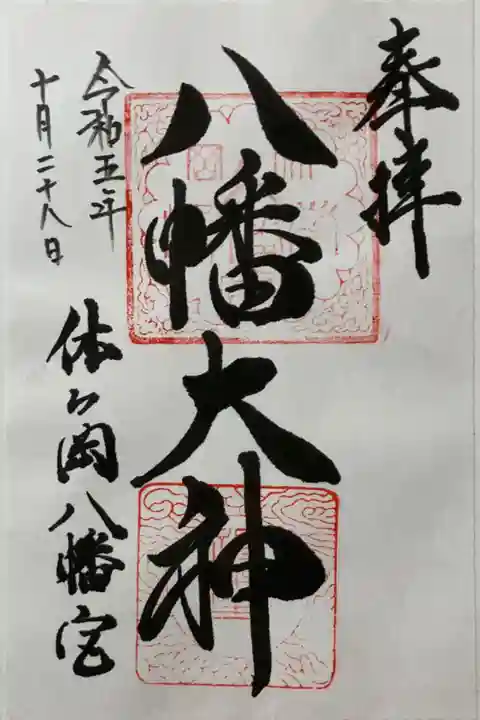 奉拝
八幡大神
休ヶ岡八幡宮
令和五年
十月二十八日